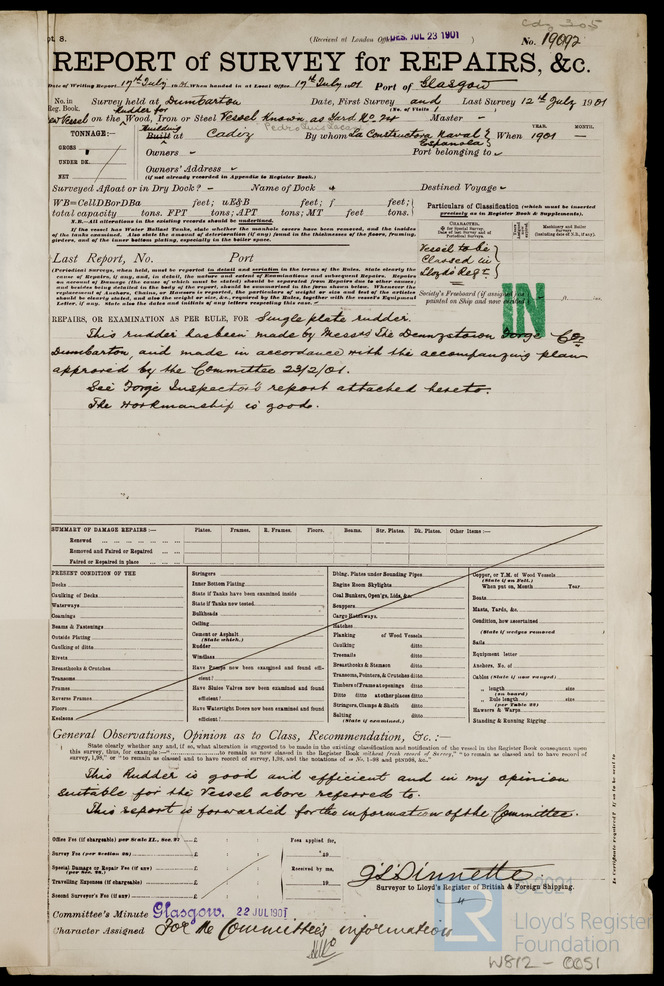 Cdz 305
pt 8.
(Received at London Office DES. JUL 23 1901 )
No. 19092
REPORT of SURVEY for REPAIRS, &c.
Date of Writing Report 17th July 1901 When handed in at Local Office 17th July 1901 Port of Glasgow
No. in Survey held at Dumbarton Date, First Survey and Last Survey 12th July 1901
Reg. Book. Rudder for (No. of Visits )
New Vessel on the Wood, Iron or Steel Vessel known as Yard No Master -
TONNAGE:— Building Pedro Luis Lacave YEAR. MONTH.
Built at Cadiz By whom La Constructora Naval Española When 1901 -
GROSS Owners Port belonging to
UNDER DK. Owners' Address
NET (if not already recorded in Appendix to Register Book.)
Surveyed Afloat or in Dry Dock? - Name of Dock Destined Voyage
WB=CellDBorDBa feet; uE&B feet; f feet;
total capacity tons. FPT tons; APT tons; MT feet tons.
N.B.—All alterations in the existing records should be underlined.
If the vessel has Water Ballast Tanks, state whether the manhole covers have been removed, and the insides
of the tanks examined. Also state the amount of deterioration (if any) found in the thicknesses of the floors, framing,
girders, and of the inner bottom plating, especially in the boiler space.
Particulars of Classification (which must be inserted
precisely as in Register Book & Supplements).
CHARACTER.
Vessel to be
Classed in
Lloyd's Regr
Last Report, No. Port
(Periodical Surveys, when held, must be reported in detail and seriatim in the terms of the Rules. State clearly the
cause of Repairs, if any, and, in detail, the nature and extent of Examinations and subsequent Repairs. Repairs
on account of Damage (the cause of which must be stated) should be separated from Repairs due to other causes;
and besides being detailed in the body of the report, should be summarized in the form shewn below.
Society's Freeboard (if assigned) as
painted on Ship and now
IN
REPAIRS, OR EXAMINATION AS PER RULE, FOR Single plate rudder.
This rudder has been made by Messrs The Dennystown Forge Co
Dumbarton, and made in accordance with the accompanying plan
approved by the Committee 23/2/01.
See Forge Inspector's report attached hereto.
The workmanship is good.
SUMMARY OF DAMAGE REPAIRS:— Plates. Frames. R. Frames. Floors. Beams. Str. Plates. Dk. Plates. Other Items:—
Renewed
Removed and Faired or Repaired
Faired or Repaired in place
PRESENT CONDITION OF THE
Decks
Caulking of Decks
Waterways
Coamings
Beams & Fastenings
Outside Plating
Caulking of ditto
Rivets
Breasthooks & Crutches
Transoms
Frames
Reverse Frames
Floors
Keelsons
Stringers
Inner Bottom Plating
State if Tanks have been examined inside
State if Tanks now tested
Bulkheads
Ceiling
Cement or Asphalt
(State which.)
Rudder
Windlass
Have Pumps now been examined and found effi-
cient?
Have Sluice Valves now been examined and found
efficient?
Have Watertight Doors now been examined and found
efficient?
Dblng. Plates under Sounding Pipes
Engine Room Skylights
Coal Bunkers, Open'gs, Lids, &c.
Scuppers
Cargo Hatchways
Hatches
Planking of Wood Vessels
Caulking ditto
Treenails ditto
Breasthooks & Stemson ditto
Transoms, Pointers, & Crutches ditto
Timbers of Frame at openings ditto
Ditto ditto at other places ditto
Stringers, Clamps & Shelfs ditto
Salting ditto
(State if examined.)
Copper, or Y.M. of Wood Vessels
(State if on Felt.)
When put on, Month Year
Boats
Masts, Yards, &c.
Condition, how ascertained
(State if wedges removed
Sails
Equipment letter
Anchors, No. of
Cables (State if now ranged)
„ length size
(on board)
„ Rule length size
(per Table 22)
Hawsers & Warps
Standing & Running Rigging
General Observations, Opinion as to Class, Recommendation, &c.:—
State clearly whether any and, if so, what alteration is suggested to be made in the existing classification and notification of the vessel in the Register Book consequent upon
This Rudder is good and efficient and in my opinion
suitable for the Vessel above referred to.
This report is forwarded for the information of the Committee.
Office Fee (if chargeable) per Scale II., Sec. 27 £
Survey Fee (per Section 28) £
Special Damage or Repair Fee (if any) £
(per Sec. 28.)
Travelling Expenses (if chargeable) £
Second Surveyor's Fee (if any) £
Fees applied for,
19
Received by me,
19
Surveyor to Lloyd's Register of British & Foreign Shipping.
Committee's Minute Glasgow. 22 JUL 1901
Character Assigned For the Committee's information
© 2021
LR
Lloyd's Register
Foundation
W812 - 0051